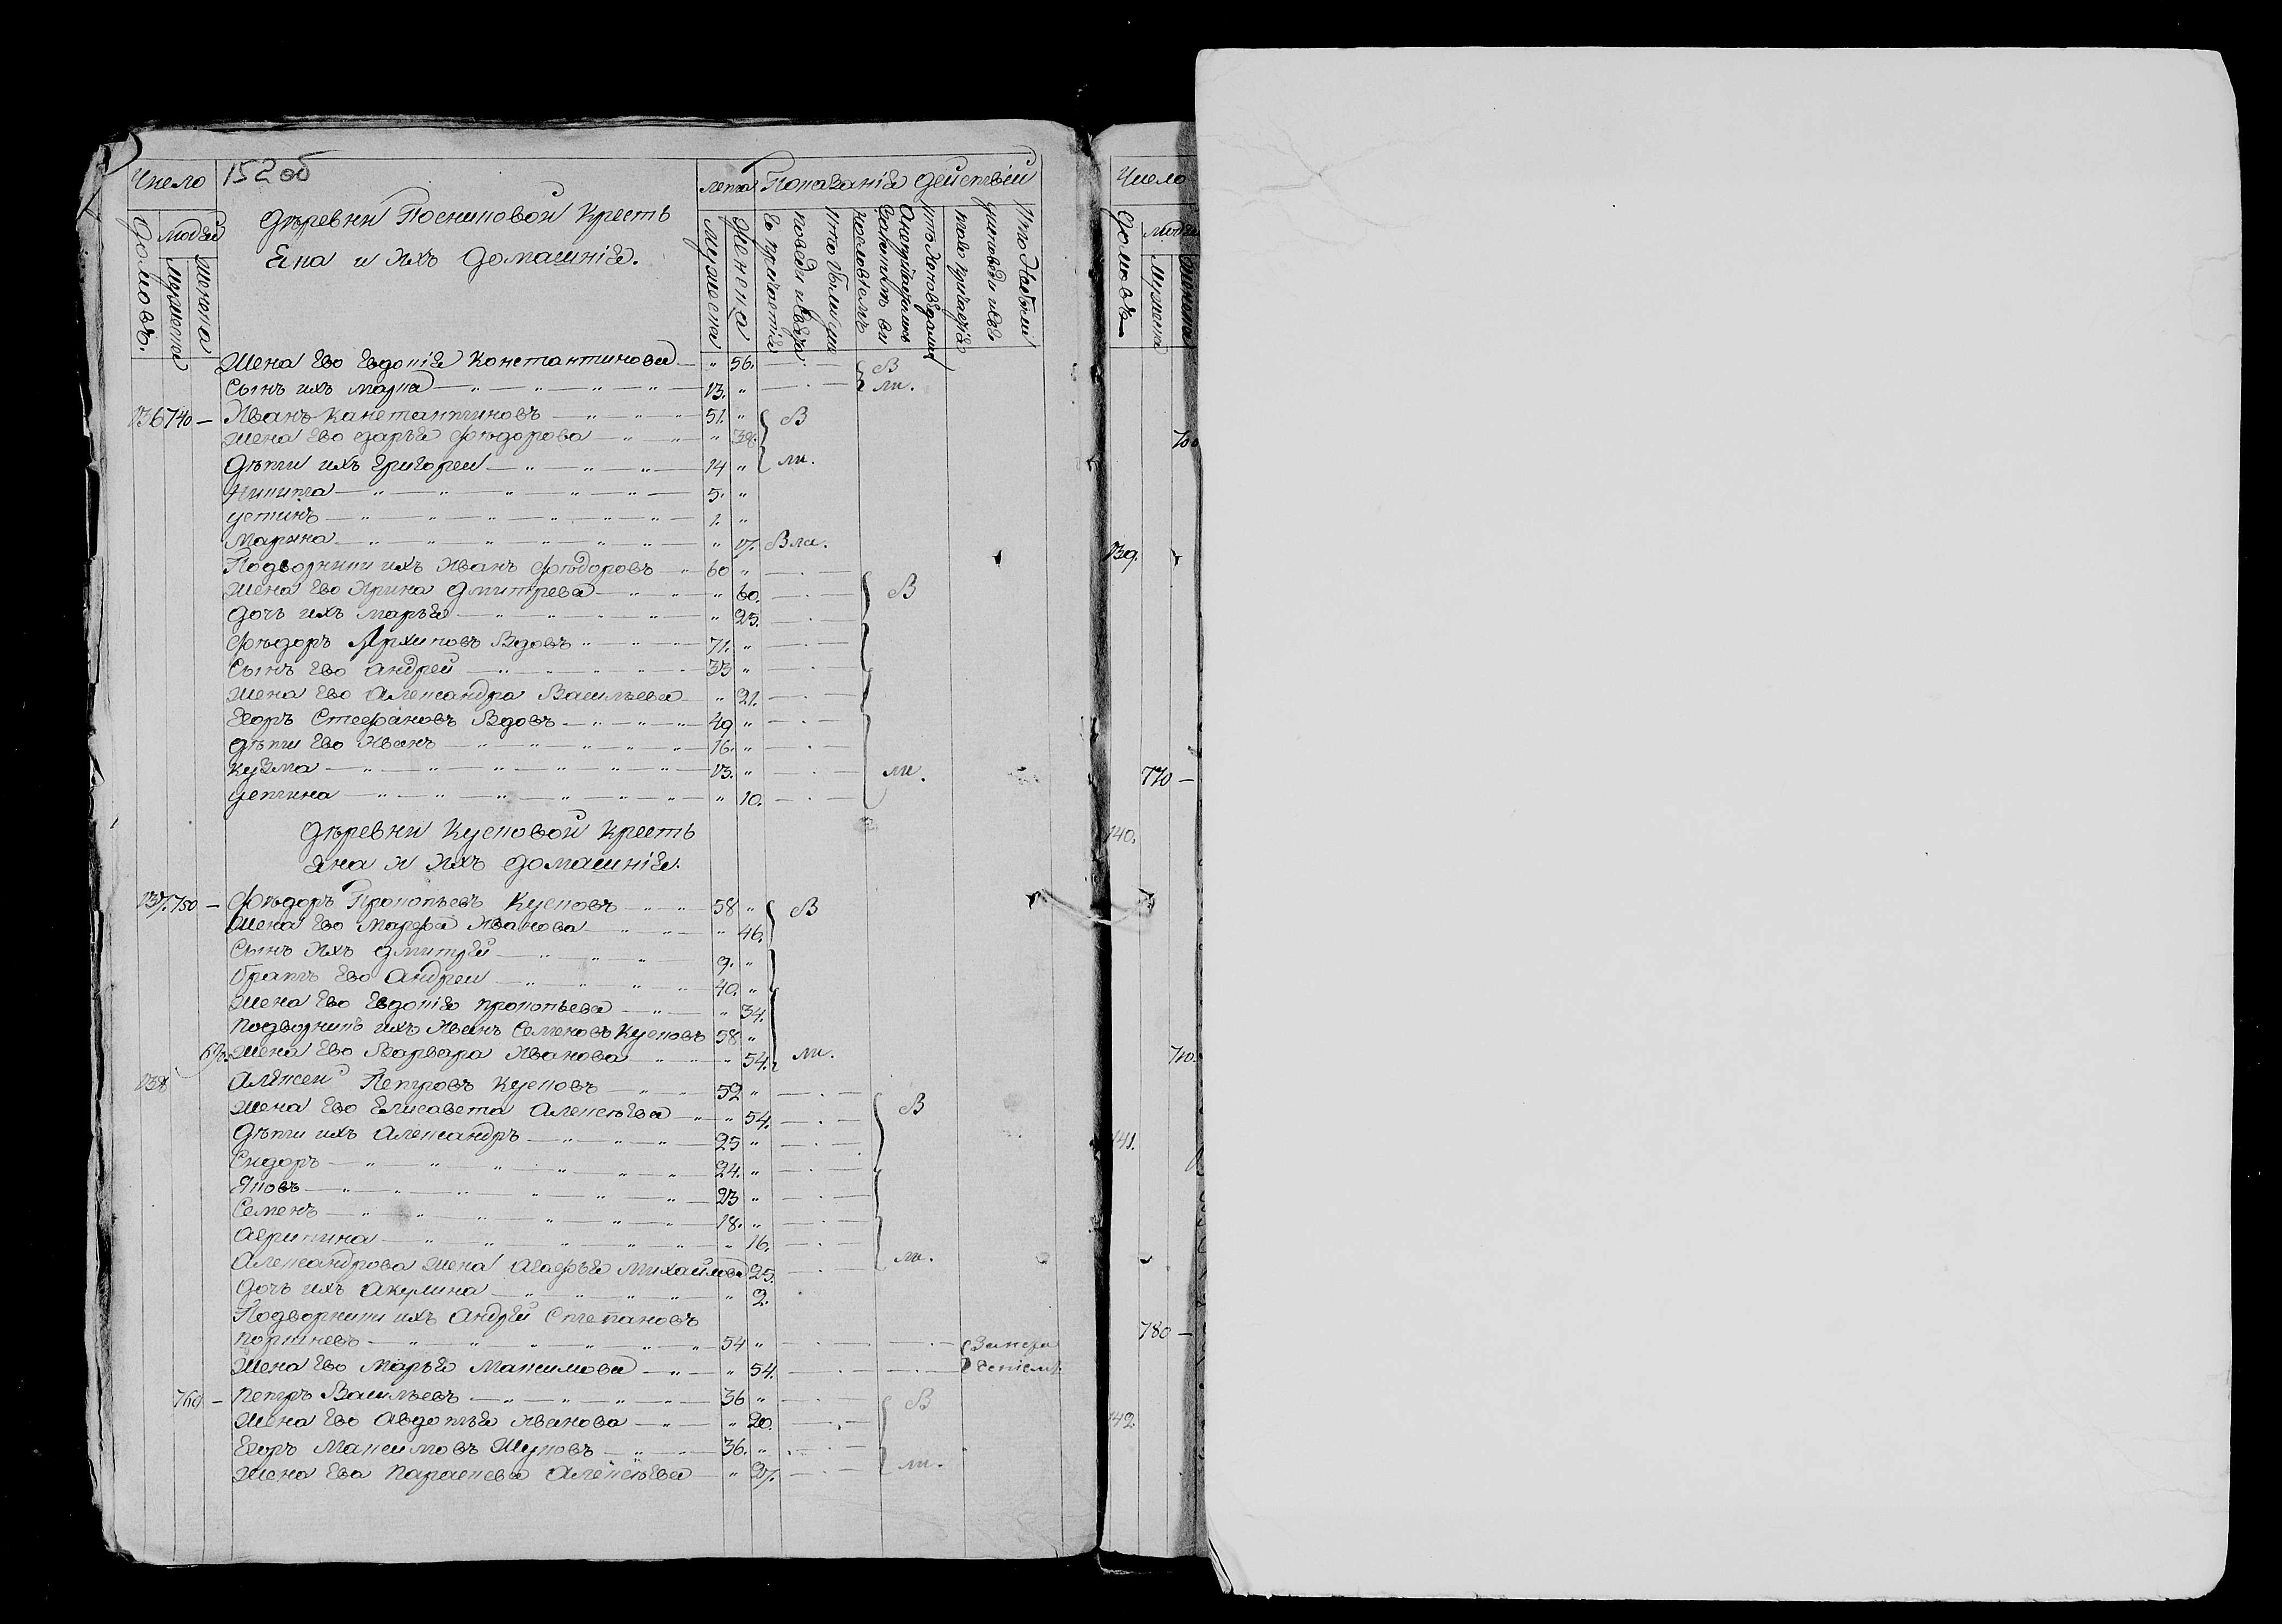 152 об
Число
Домовъ.
Людей
Мужеска
Женска
Деревни Поскиновой Кресть
яна и Ихъ Домашнія.
лета
Мужеска
Женска
Показанія действій
Жена Ево Евдокія Константинова — „ 56.
Сынъ ихъ марка — 13. „ В ли.
136 740 — Иванъ канстантиновъ — 51. „ В
жена Ево дарья федорова — „ 38.
Дети ихъ Григореи — 14 „ ли.
Никита — 5. „
устинъ — 1. „
Марина — „ 17. В ли.
Подворники ихъ Иванъ федоровъ 60 „
Жена Ево Ирина Дмитрева — „ 60. В
Дочь ихъ марья — „ 25.
федоръ Архиповъ Вдовъ 71. „
Сынъ Ево андрей — 33 „
жена Ево Александра Васильева „ 21.
Егоръ Стефановъ Вдовъ — 49 „
дети Ево Иванъ — 16. „
кузма — 13. „ ли.
устина — „ 10.
Деревни Кусковой Кресть
яна и Ихъ домашнія.
137. 750 — Федоръ Прокопьевъ Кусковъ 58 „ В
Жена Ево Марфа Иванова „ 46.
Сынъ Ихъ дмитрей — 9. „
братъ Ево Андреи — 40. „
жена Ево Евдокія прокопьева — „ 34.
подворникъ ихъ Иванъ Семеновъ Кусковъ 58 „
жена Ево Варвара Иванова „ 54. ли.
138 Алексеи Петровъ Кусковъ — 52 „
жена Ево Елисавета Алексеева „ 54. В
Дети ихъ Александръ — 25 „
Сидоръ — 24. „
Яковъ — 23 „
Семенъ — 18. „
Агрипина — „ 16.
Александрова жена Агафья Михайлова 25. ли.
Дочь ихъ Акулина — „ 2.
Подворники ихъ Андрей Степановъ
поршневъ — 54 „
Жена Ево Марья Максимова — „ 54.
760 — Петръ Васильевъ — 36 „ В
жена Ево Авдотья Иванова — „ 20.
Егоръ Максимовъ Жуковъ — 36. „
жена Ева Параскева Алексеева „ 27. ли.
Число
Домовъ
Людей
Мужеска
Женска
700
139.
770 —
140.
710.
141.
780 —
142